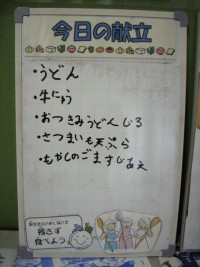 今日の献立
・うどん
・牛にゅう
・おつきみうどんじる
・さつまいも天ぷら
・もやしのごますじあえ
残さず
食べよう